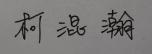 柯混瀚